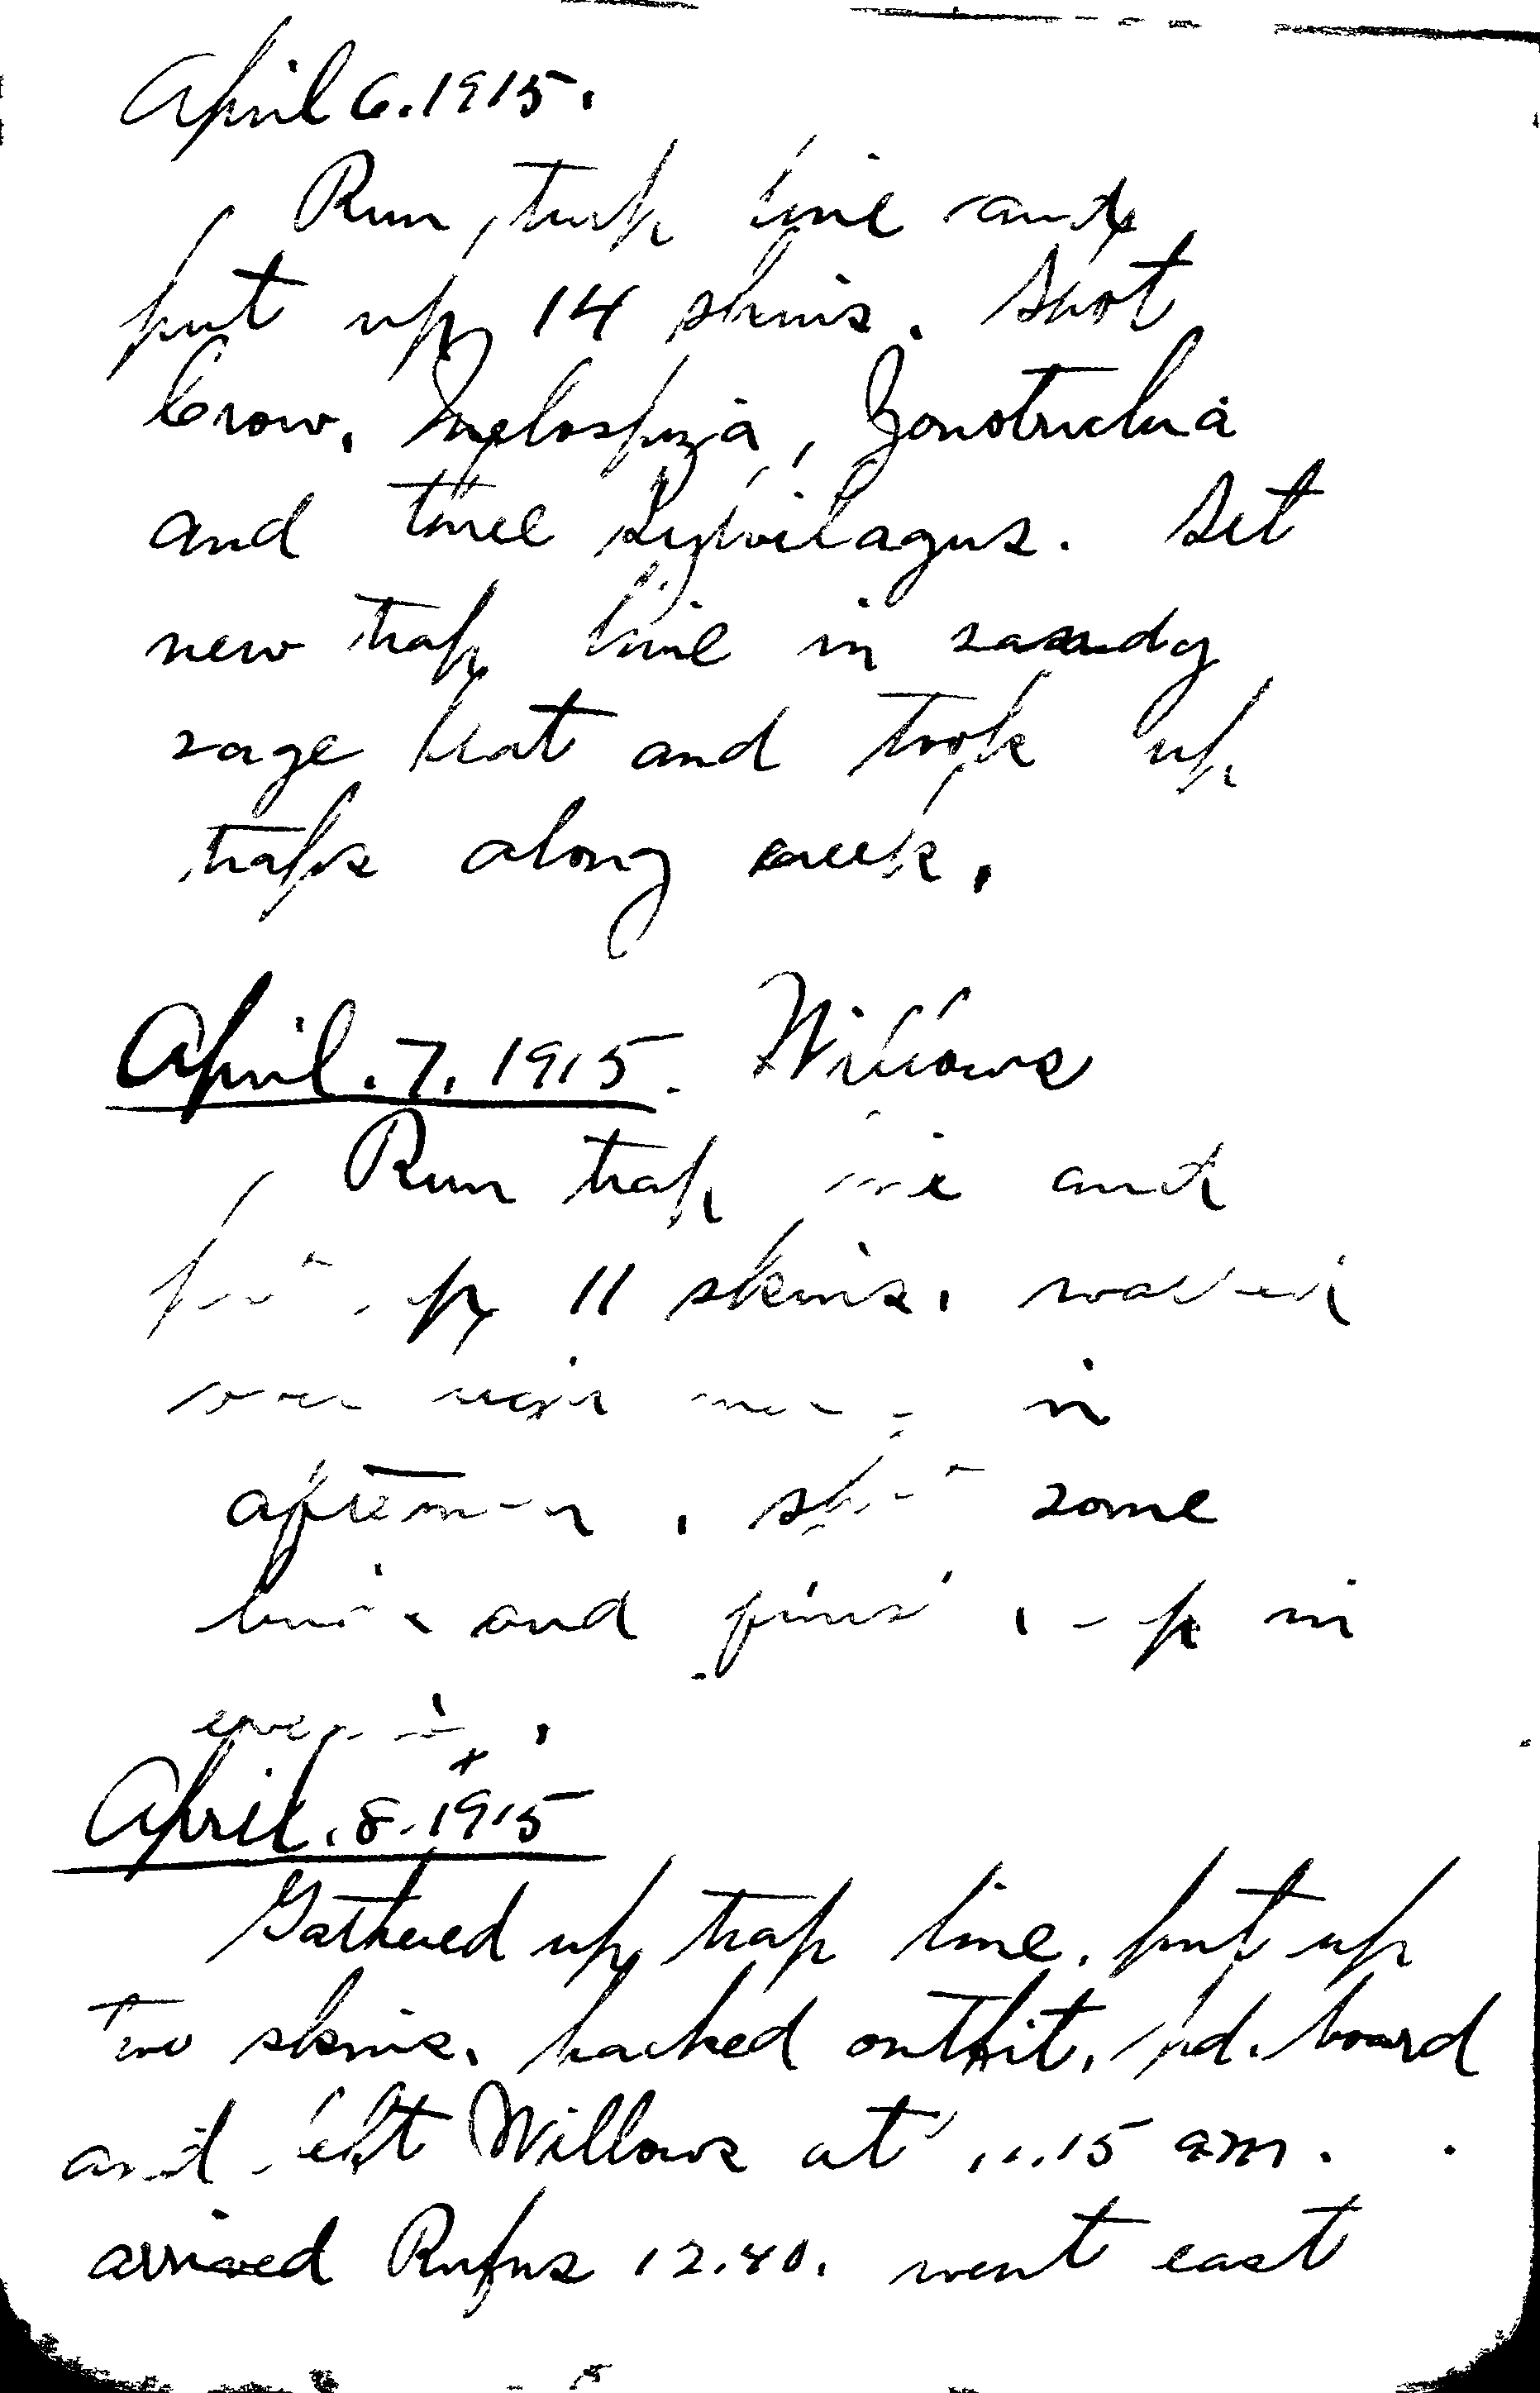 April 6. 1915.
Run trap line and
put up 14 skins. Shot
Crow, Melospiza, Zonotrichia
and three Sylvilagus. Set
new trap line in sandy
sage flat and took up
traps along creek.
April. 7. 1915. Willows
Run trap line and
put up 11 skins. walked
over in
afternoon, shot some
birds and up in
evening.
April. 8. 1915
Gathered up trap line. put up
two skins. packed outfit, pd. board
and left Willows at 11.15 am.
arrived Rufus 12.40. went east